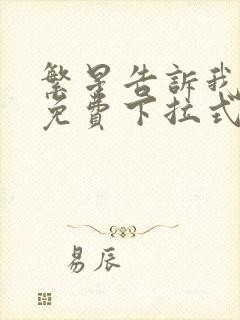 繁星告訴我
免費下拉式
易辰